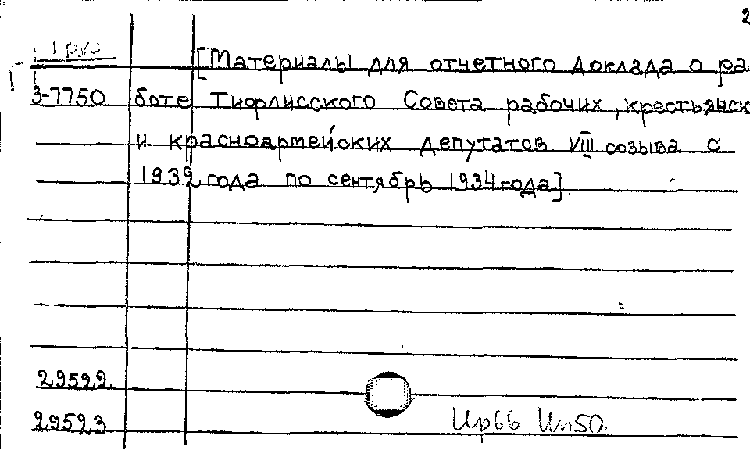 2
[Материалы для отчетного доклада о ра
3-7750 боте Тифлисского Совета рабочих, крестьянск
и красноармейских депутатов VIII созыва с
1932 года по сентябрь 1934 года]
29522
29523